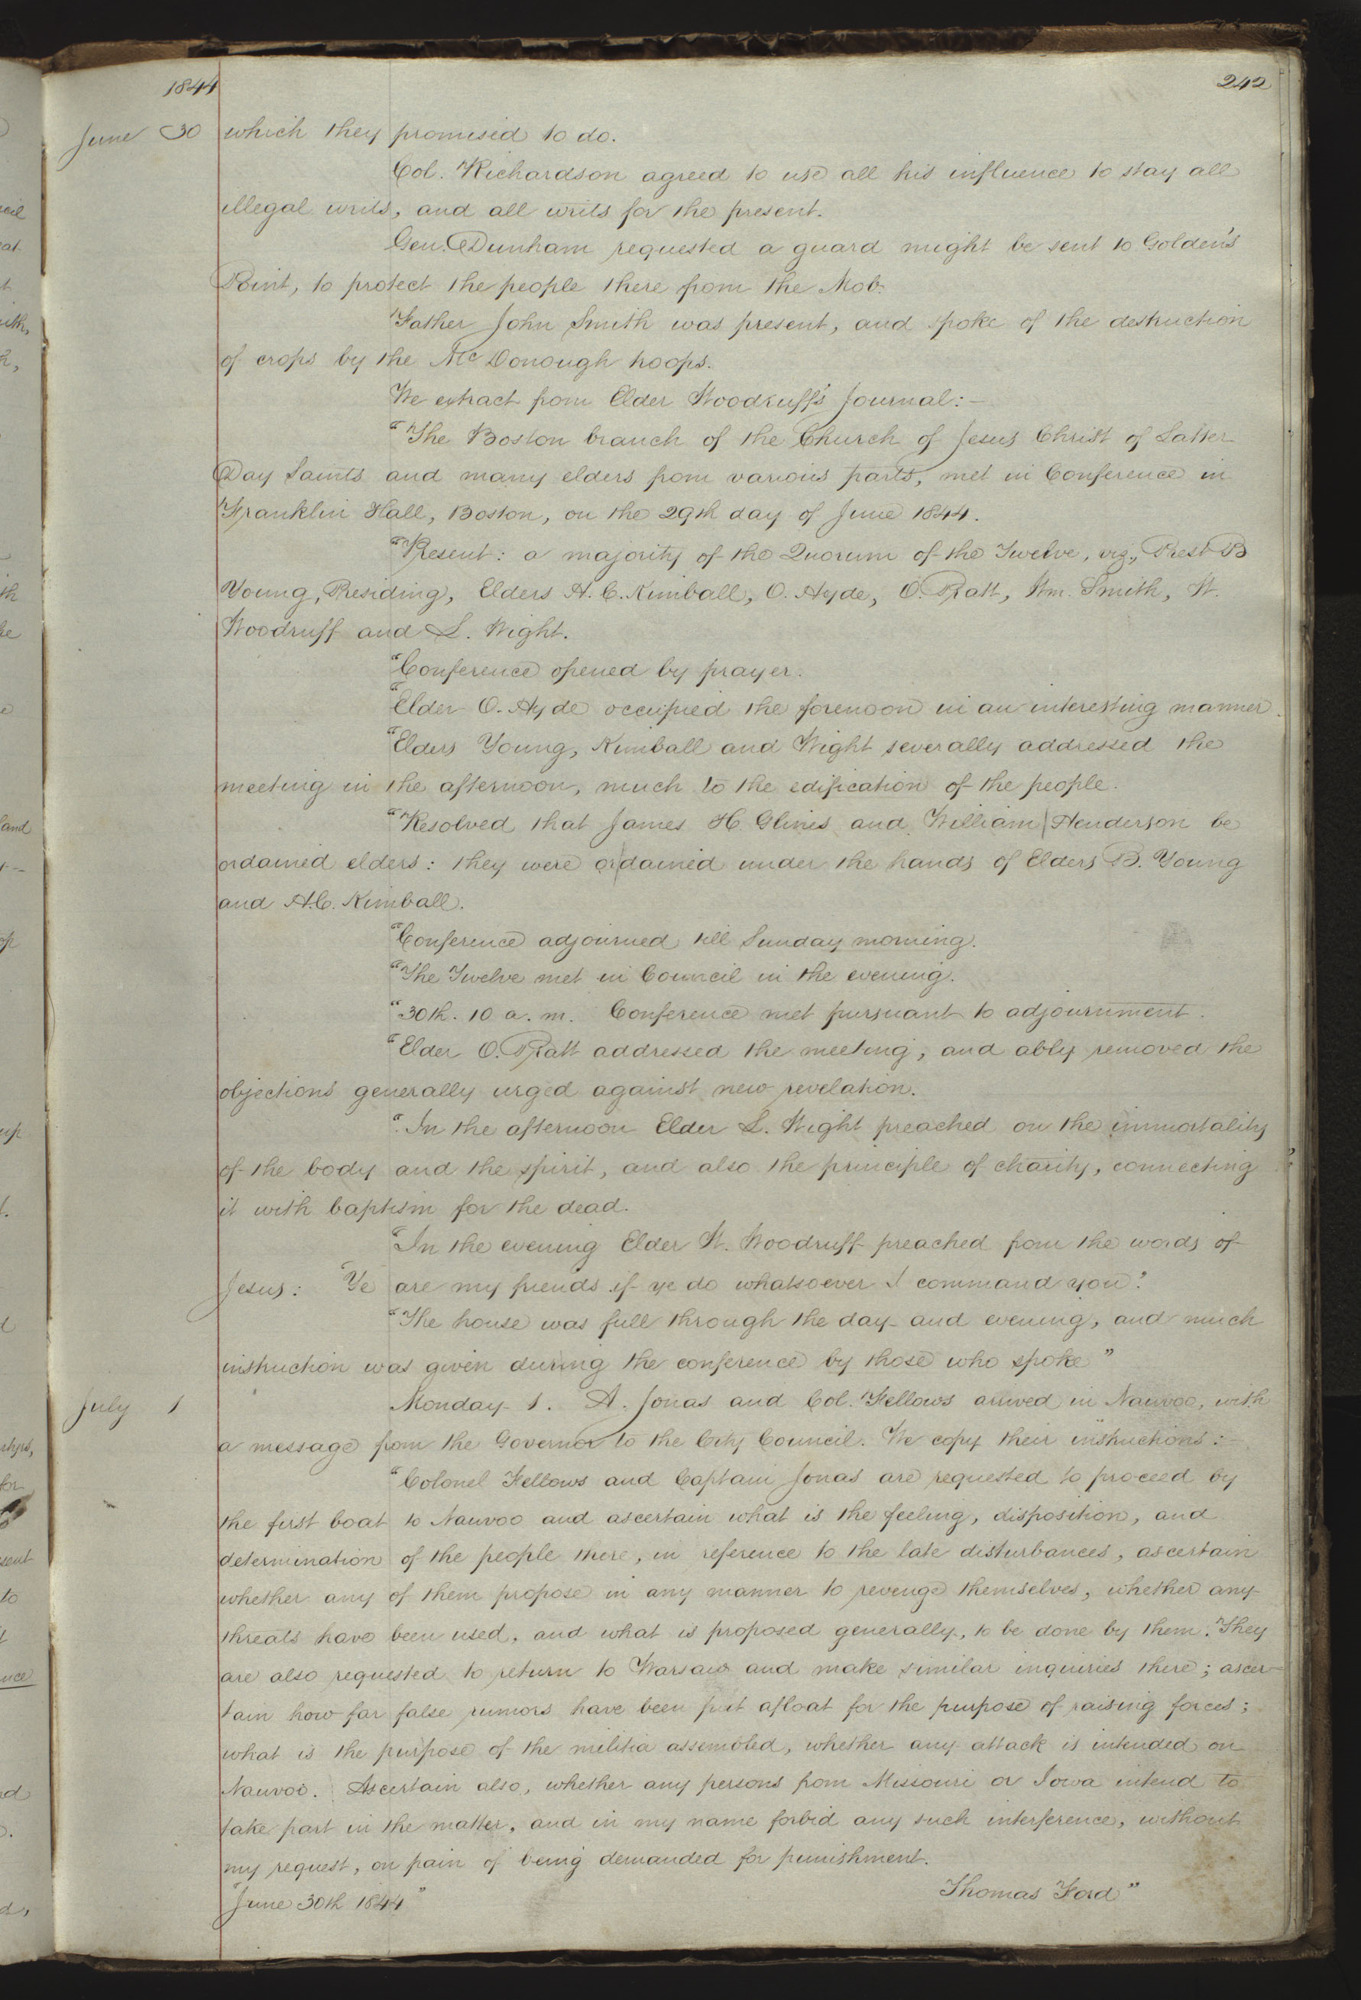 1844
242
June 30 which they promised to do.
Col. Richardson agreed to use all his influence to stay all
illegal writs, and all writs for the present.
Gen. Dunham requested a guard might be sent to Golden's
Point, to protect the people there from the Mob.
Father John Smith was present, and spoke of the destruction
of crops by the Mc Donough troops.
We extract from Elder Woodruff's Journal:—
"The Boston branch of the Church of Jesus Christ of Latter
Day Saints and many elders from various parts, met in Conference in
Franklin Hall, Boston, on the 29th day of June 1844.
"Present: a majority of the Quorum of the Twelve, viz., Prest B
Young, Presiding, Elders H. C. Kimball, O. Hyde, O. Pratt, Wm. Smith, W.
Woodruff and L. Wight.
"Conference opened by prayer.
"Elder O. Hyde occupied the forenoon in an interesting manner.
"Elders Young, Kimball and Wight severally addressed the
meeting in the afternoon, much to the edification of the people.
"Resolved that James H Glines and William Henderson be
ordained elders: they were ordained under the hands of Elders B. Young
and H.C. Kimball.
"Conference adjourned till Sunday morning.
"The Twelve met in Council in the evening.
"30th. 10 a. m. Conference met pursuant to adjournment.
"Elder O. Pratt addressed the meeting, and ably removed the
objections generally urged against new revelation.
"In the afternoon Elder L. Wight preached on the immortality
of the body and the spirit, and also the principle of charity, connecting
it with baptism for the dead.
"In the evening Elder W. Woodruff preached from the words of
Jesus: 'Ye are my friends if ye do whatsoever I command you.'
"The house was full through the day and evening, and much
instruction was given during the conference by those who spoke"
July 1 Monday 1. A. Jonas and Col. Fellows arrived in Nauvoo, with
a message from the Governor to the City Council. We copy their instructions:—
"Colonel Fellows and Captain Jonas are requested to proceed by
the first boat to Nauvoo and ascertain what is the feeling, disposition, and
determination of the people there, in reference to the late disturbances, ascertain
whether any of them propose in any manner to revenge themselves, whether any
threats have been used, and what is proposed generally, to be done by them. They
are also requested to return to Warsaw and make similar inquiries there; ascer-
tain how far false rumors have been put afloat for the purpose of raising forces;
what is the purpose of the militia assembled, whether any attack is intended on
Nauvoo. Ascertain also, whether any persons from Missouri or Iowa intend to
take part in the matter, and in my name forbid any such interference, without
my request, on pain of being demanded for punishment.
Thomas Ford"
"June 30th 1844"